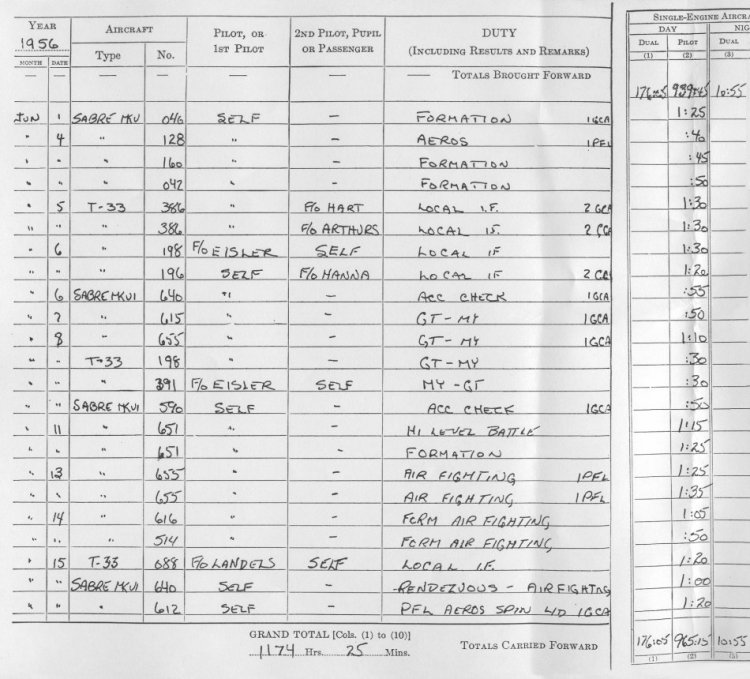 YEAR AIRCRAFT PILOT, OR 2ND PILOT, PUPIL DUTY SINGLE-ENGINE AIRCRA
1956 1ST PILOT OR PASSENGER (INCLUDING RESULTS AND REMARKS) DAY NIG
MONTH DATE Type No. DUAL PILOT DUAL
(1) (2) (3)
— — — — — — — TOTALS BROUGHT FORWARD 176:05 939:45 10:55
JUN 1 SABRE MKV 046 SELF — FORMATION 1GCA 1:25
" 4 " 128 " — AEROS 1PFL :40
" " " 160 " — FORMATION :45
" " " 042 " — FORMATION :50
" 5 T-33 386 " F/O HART LOCAL I.F. 2 GCA 1:30
" " " 386 " F/O ARTHURS LOCAL I.F. 2 GCA 1:30
" 6 " 198 F/O EISLER SELF LOCAL IF 1:30
" " " 196 SELF F/O HANNA LOCAL IF 2 GCA 1:20
" 6 SABRE MKVI 640 " — ACC CHECK 1GCA :55
" 7 " 615 " — GT-MY 1GCA :50
" 8 " 655 " — GT-MY 1GCA 1:10
" " T-33 198 " — GT-MY :30
" " " 391 F/O EISLER SELF MY-GT :30
" " SABRE MKVI 590 SELF — ACC CHECK 1GCA :50
" 11 " 651 " — HI LEVEL BATTLE 1:15
" " " 651 " — FORMATION 1:25
" 13 " 655 " — AIR FIGHTING 1PFL 1:25
" " " 655 " — AIR FIGHTING 1PFL 1:35
" 14 " 616 " — FORM AIR FIGHTING 1:05
" " " 514 " — FORM AIR FIGHTING :50
" 15 T-33 688 F/O LANDELS SELF LOCAL I.F. 1:20
" " SABRE MKVI 640 SELF — RENDEZVOUS - AIRFIGHTING 1:00
" " " 612 SELF — PFL AEROS SPIN W/D 1GCA 1:20
GRAND TOTAL [Cols. (1) to (10)]
1174 Hrs. 25 Mins. TOTALS CARRIED FORWARD 176:05 965:15 10:55
(1) (2) (3)